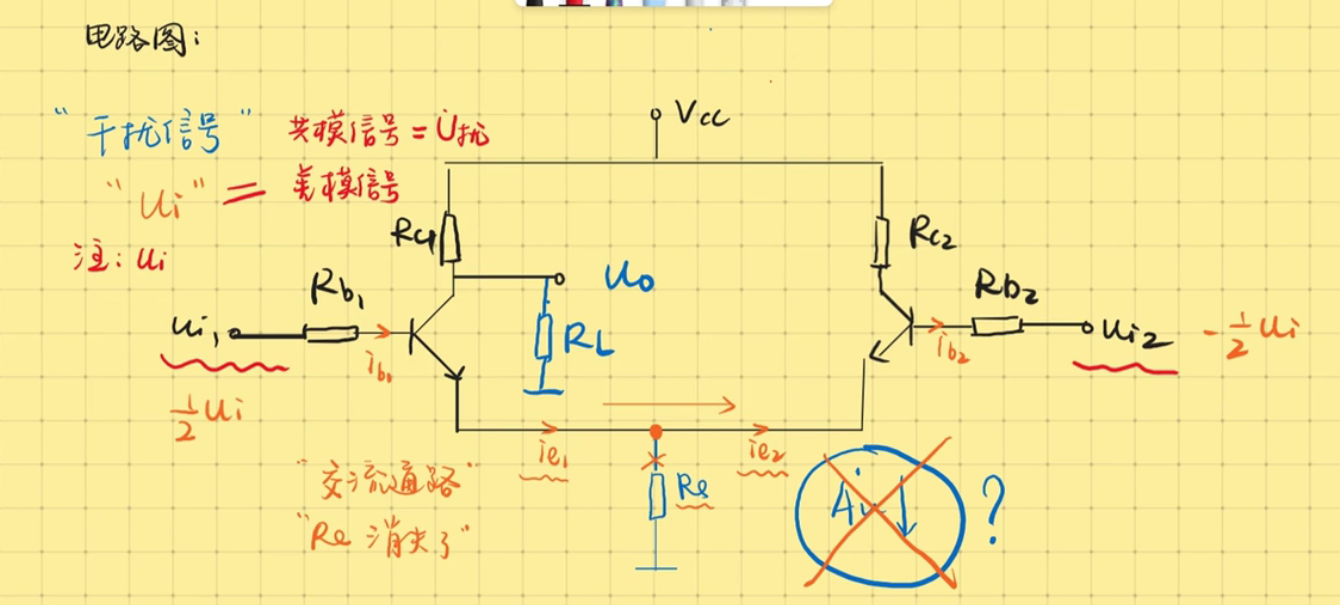 电路图:
"干扰信号" 共模信号 = U̇扰
"Ui" = 差模信号
注: Ui
Vcc
Rc1
Rc2
Uo
RL
Rb1
Rb2
Ui1
ib1
ib2
Ui2
-1/2 Ui
1/2 Ui
ie1
ie2
Re
"交流通路"
"Re 消失了"
Au↓ ?